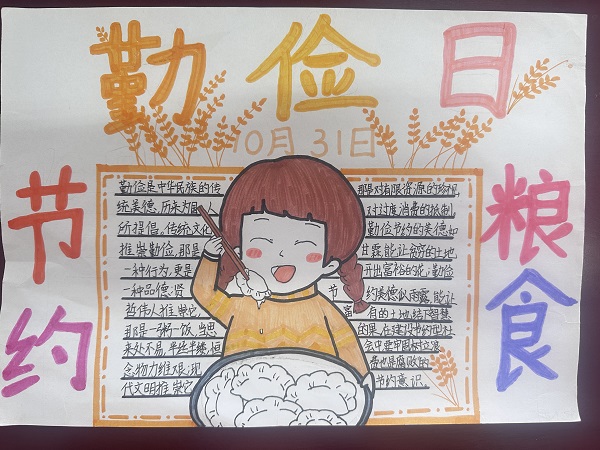 勤俭日
10月31日
节约
粮食
勤俭是中华民族的传
统美德,历来为国人
所提倡,传统文化
推崇勤俭,那是
一种行为,更是
一种品德;贤
哲伟人推崇它
那是一粥一饭,当思
来处不易,半丝半缕,恒
念物力维艰;现
代文明推崇它
那是对有限资源的珍视,
对过度消费的抵制
勤俭节约的美德如
甘露,能让贫穷的土地
开出富裕的花;勤俭
节约美德似雨露,能让
富有的土地结下智慧
的果,在建设节约型社
会中要牢固树立浪
费也是腐败的
节约意识